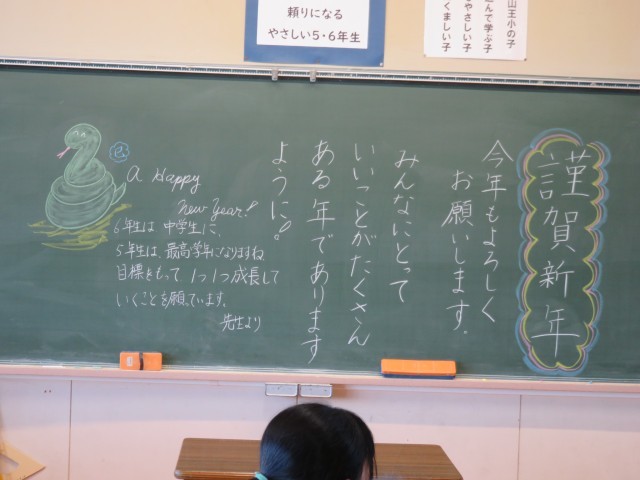 頼りになる
やさしい5・6年生
山王小の子
んで学ぶ子
やさしい子
くましい子
謹賀新年
今年もよろしく
お願いします.
みんなにとって
いいことがたくさん
ある年であります
ように!
巳
a Happy
new year!
6年生は中学生に、
5年生は、最高学年になりますね
目標をもって 1つ1つ成長して
いくことを願っています。
先生より